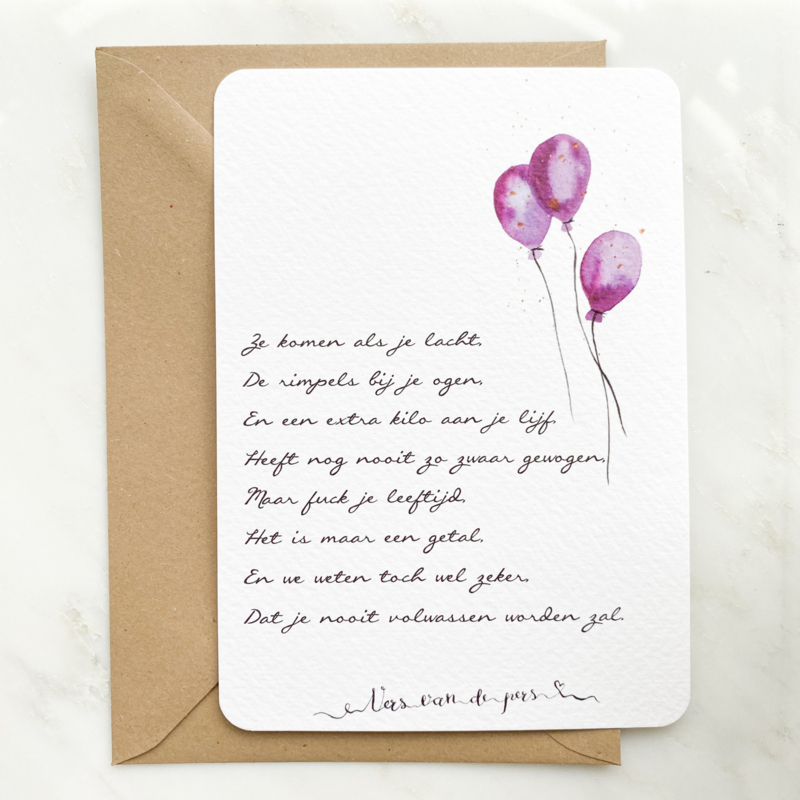 Ze komen als je lacht,
De rimpels bij je ogen,
En een extra kilo aan je lijf,
Heeft nog nooit zo zwaar gewogen,
Maar fuck je leeftijd,
Het is maar een getal,
En we weten toch wel zeker,
Dat je nooit volwassen worden zal.
Vers van de pers